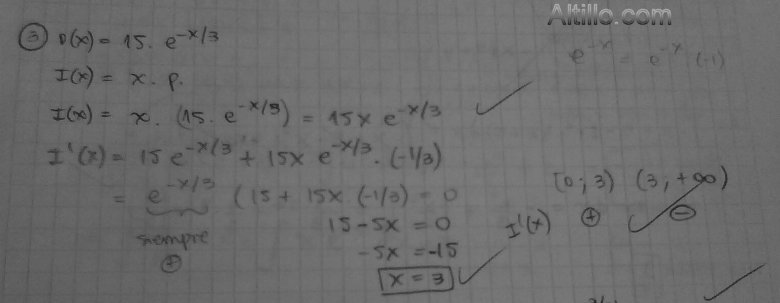 Altillo.com
③ D(x) = 15. e^-x/3
e^-x = e^-x (-1)
I(x) = x. p.
I(x) = x. (15. e^-x/3) = 15x e^-x/3
I'(x) = 15 e^-x/3 + 15x e^-x/3. (-1/3)
= e^-x/3 (15 + 15x (-1/3) = 0
[0; 3) (3, +∞)
siempre ⊕
15 - 5x = 0
I'(x) ⊕ ⊖
-5x = -15
x = 3